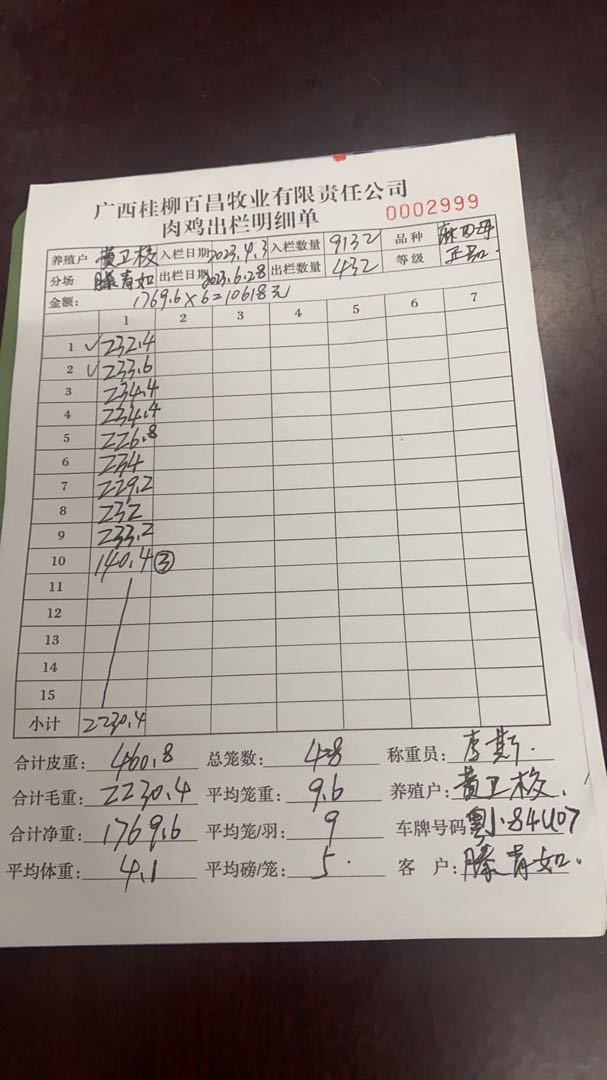 广西桂柳百昌牧业有限责任公司
肉鸡出栏明细单 0002999
养殖户 黄卫校 入栏日期 2023.4.3 入栏数量 9132 品种
分场 滕青如 出栏日期 2023.6.28 出栏数量 432 等级 正品.
金额： 1769.6×6=10618元
1 2 3 4 5 6 7
1 ✓232.4
2 ✓233.6
3 234.4
4 234.4
5 226.8
6 234
7 229.2
8 232
9 233.2
10 140.4 ③
11
12
13
14
15
小计 2230.4
合计皮重： 460.8 总笼数： 48 称重员： 李斯.
合计毛重： 2230.4 平均笼重： 9.6 养殖户： 黄卫校.
合计净重： 1769.6 平均笼/羽： 9 车牌号码 84U07
平均体重： 4.1 平均磅/笼： 5. 客 户： 滕青如.